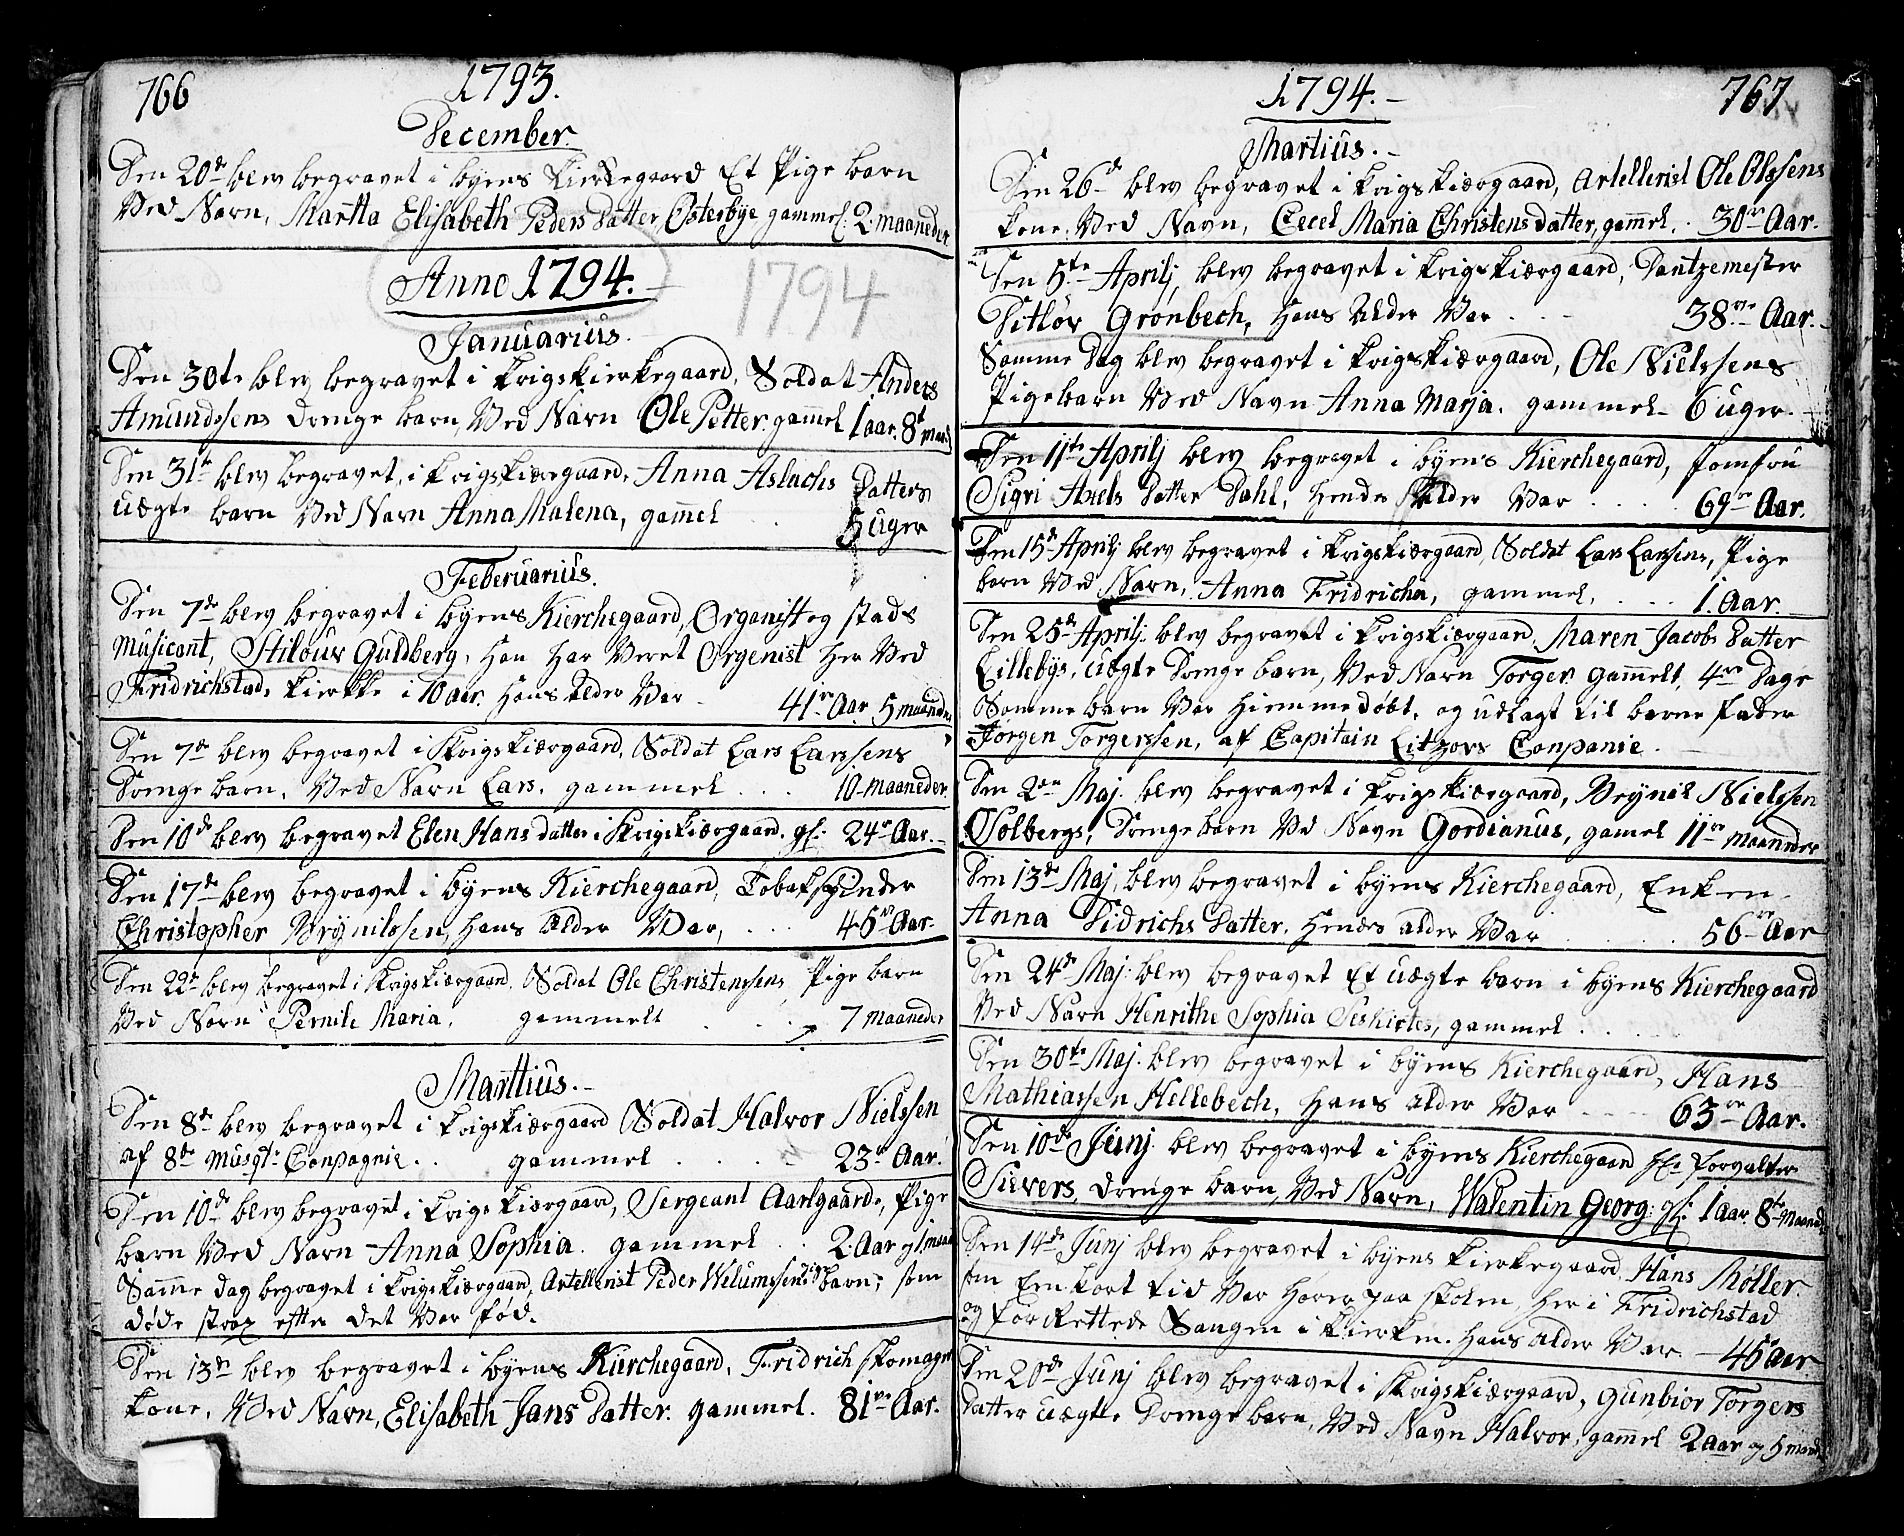 766
1793.
December.
Den 20de blev begravet i byens Kierkegaard Et Pige barn
Ved Navn, Martta Elisabeth Peders Datter Østerbye gammel: 2 maaneder
Anno 1794.
1794
Januarius.
Den 30te blev begravet i Krigskierkegaard, Soldat Anders
Amundssens Drenge barn, Ved Navn Ole Petter. gammel 1 aar. 8te maand
Den 31te blev begravet, i Krigskiærgaard, Anna Aslachs Datters
uægte barn Ved Navn Anna Malena, gammel . . 5 uger
Feberuarius.
Den 7de blev begravet i byens Kierchegaard, Organist og stads
Musicant, Stilour Guldberg, Han Har Veret Orgenist Her Ved
Fridrichstads Kierkke i 10 aar. Hans alder Var - 41re Aar 5 maander
Den 7de blev begravet i Krigskiærgaard, Soldat Lars Larssens
Drenge barn, Ved Navn Lars, gammel . . . 10 maaneder.
Den 10de blev begravet Elen Hans datter i Krigskiærgaard. gl: 24re Aar.
Den 17de blev begravet i byens Kierchegaard, Tobakspinder
Christopher Brynilssen, Hans alder Var, . . . 45re Aar.
Den 22de blev begravet i Krigskiærgaard, Soldat Ole Christenssens Pige barn
Ved Navn Pernile Maria, gammelt . . . 7 maaneder
Marttius.
Den 8de blev begravet i Krigskiærgaard Soldat Halvor Nielssen
af 8de Musqts Conpagnie . . gammel . . . . 23re Aar.
Den 10de blev begravet i Krigskiærgaard, Sergeant Aarlgaards, Pige
barn Ved Navn Anna Sophia. gammel . . 2 Aar og 1 maan
Samme dag begravet i Krigskiærgaard, Artellerist Peder Welumssens Pige barn, som
døde strax efter det Var fød.
Den 13de blev begravet i byens Kierchegaard, Fridrich skomager
kone, Ved Navn, Elisabeth Jans Datter. gammel. 81re Aar.
1794.
767
Martius.
Den 26de blev begravet i Krigskiærgaard, Artellerist Ole Olssens
kone, Ved Navn, Cecel Maria Christens datter, gammel. . 30re Aar.
Den 5te Aprilj, blev begravet i Krigskiærgaard, Dantzemester
Ditløv Grønbech, Hans alder Var . . . 38re Aar.
Samme Dag blev begravet i Krigskiærgaard, Ole Nielssens
Pigebarn Ved Navn Anna Marja. gammel 6 uger.
Den 11te Aprilj blev begravet i byens Kierchegaard, Jomfru
Sigri Axels Datter Dahl, Hendes Alder Var . . . . 67re Aar.
Den 15de Aprilj blev begravet i Krigskiærgaard, Soldat Lars Larssens, Pige
barn Ved Navn, Anna Fridricha, gammel, . . . 1. Aar.
Den 25de Aprilj blev begravet i Krigskiærgaard, Maren Jacobs Datter
Lillebys, uægte Drenge barn, Ved Navn Torger gammelt, 4re Dage
Samme barn Var Hiemmedøbt, og udlagt til barne fader
Jørgen Torgerssen, af Capitain Litzovs Conpanie.
Den 2den Maj. blev begravet i Krigskiærgaard, Brynil Nielssen
Solbergs, Drengebarn Ved Navn Gordianus, gamel 11re maaneder
Den 13de Maj, blev begravet i byens Kierchegaard, Enken
Anna Didrichs Datter. Hendes alder Var . . . . 56re Aar
Den 24de Maj: blev begravet Et uægte barn i byens Kierchegaard
Ved Navn Henrithe Sophia, gammel . .
Den 30te Maj. blev begravet i byens Kierchegaard, Hans
Mathiassen Hellebech, Hans alder Var 63re Aar.
Den 10de Junj. blev begravet i byens Kierchegaard Hr. forvalter
Sievers Drenge barn, Ved Navn, Walentin Georg. gl: 1 aar. 8te maand
Den 14de Junj blev begravet i byens Kierkegaard Hans Møller.
som Een kort tid Var Hører paa skolen Her i Fridrichstad
og forrettede Sangen i Kierken. Hans alder Var 45 aar
Den 20de Junj blev begravet i Krigskiærgaard, Gunbior Torgers
datter uægte Drenge barn, Ved Navn Halvor, gammel 2 aar og 5 maand